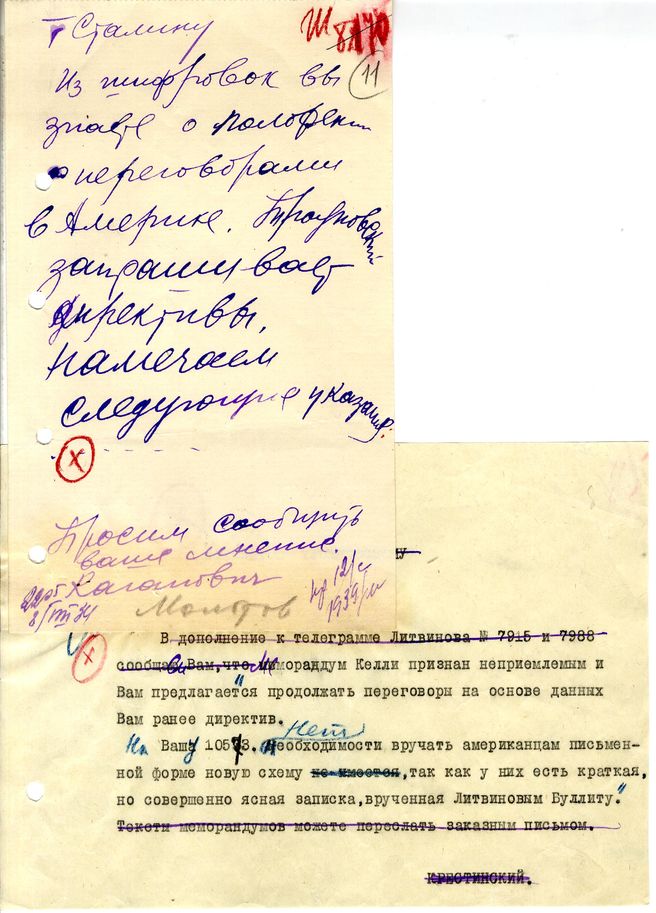 т Сталину
Ш
11
Из шифровок вы
знаете о положении
с переговорами
в Америке. Трояновский
запрашивает
директивы.
Намечаем
следующие указания:
х
Просим сообщить
ваше мнение.
Каганович
Молотов
8/VIII 34
12/
1939/ш
х
В дополнение к телеграмме Литвинова № 7915 и 7988
сообщаю Вам, что меморандум Келли признан неприемлемым и
Вам предлагается продолжать переговоры на основе данных
Вам ранее директив.
Нет
На Вашу 10573. необходимости вручать американцам письмен-
ной форме новую схему не имеется, так как у них есть краткая,
но совершенно ясная записка, врученная Литвиновым Буллиту."
Тексты меморандумов можете переслать заказным письмом.
КРЕСТИНСКИЙ.